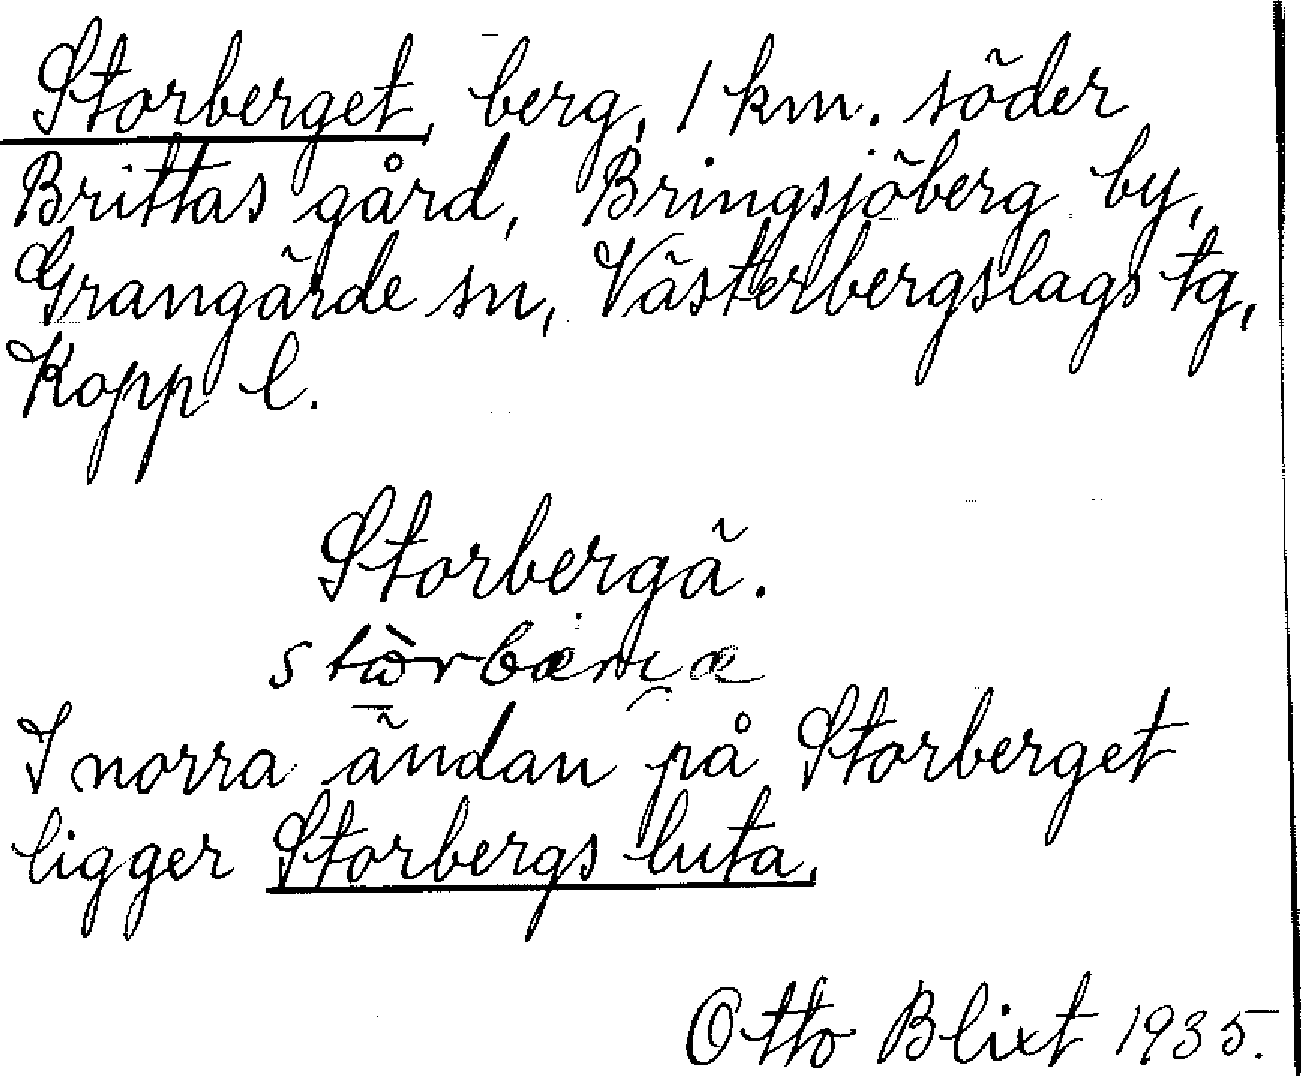 Storberget, berg, 1 km. söder
Brittas gård, Bringsjöberg by,
Grangärde sn, Västerbergslags tg,
Kopp l.
Storbergä.
I norra ändan på Storberget
ligger Storbergs luta.
Otto Blixt 1935.